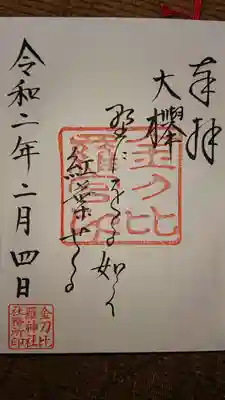 奉拝
大欅
如く
紅葉せる
令和二年二月四日
金刀比
羅宮印
金刀比
羅神社
社務所印